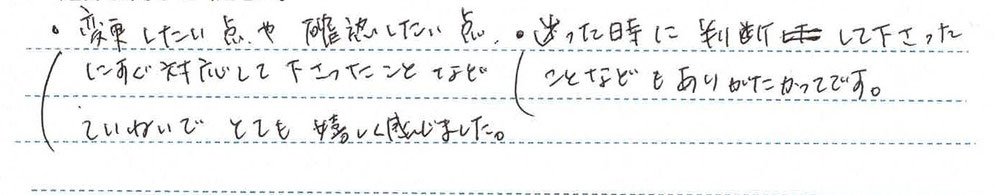 ・変更したい点や確認したい点
にすぐ対応して下さったことなど
ていねいでとても嬉しく感じました。
・迷った時に判断して下さった
ことなどもありがたかってです。